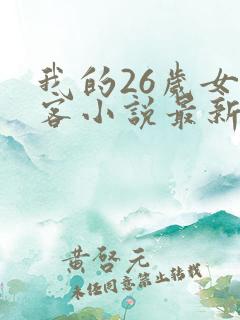 我的26歲女
客小説最新
黄啓元
未经同意禁止转载